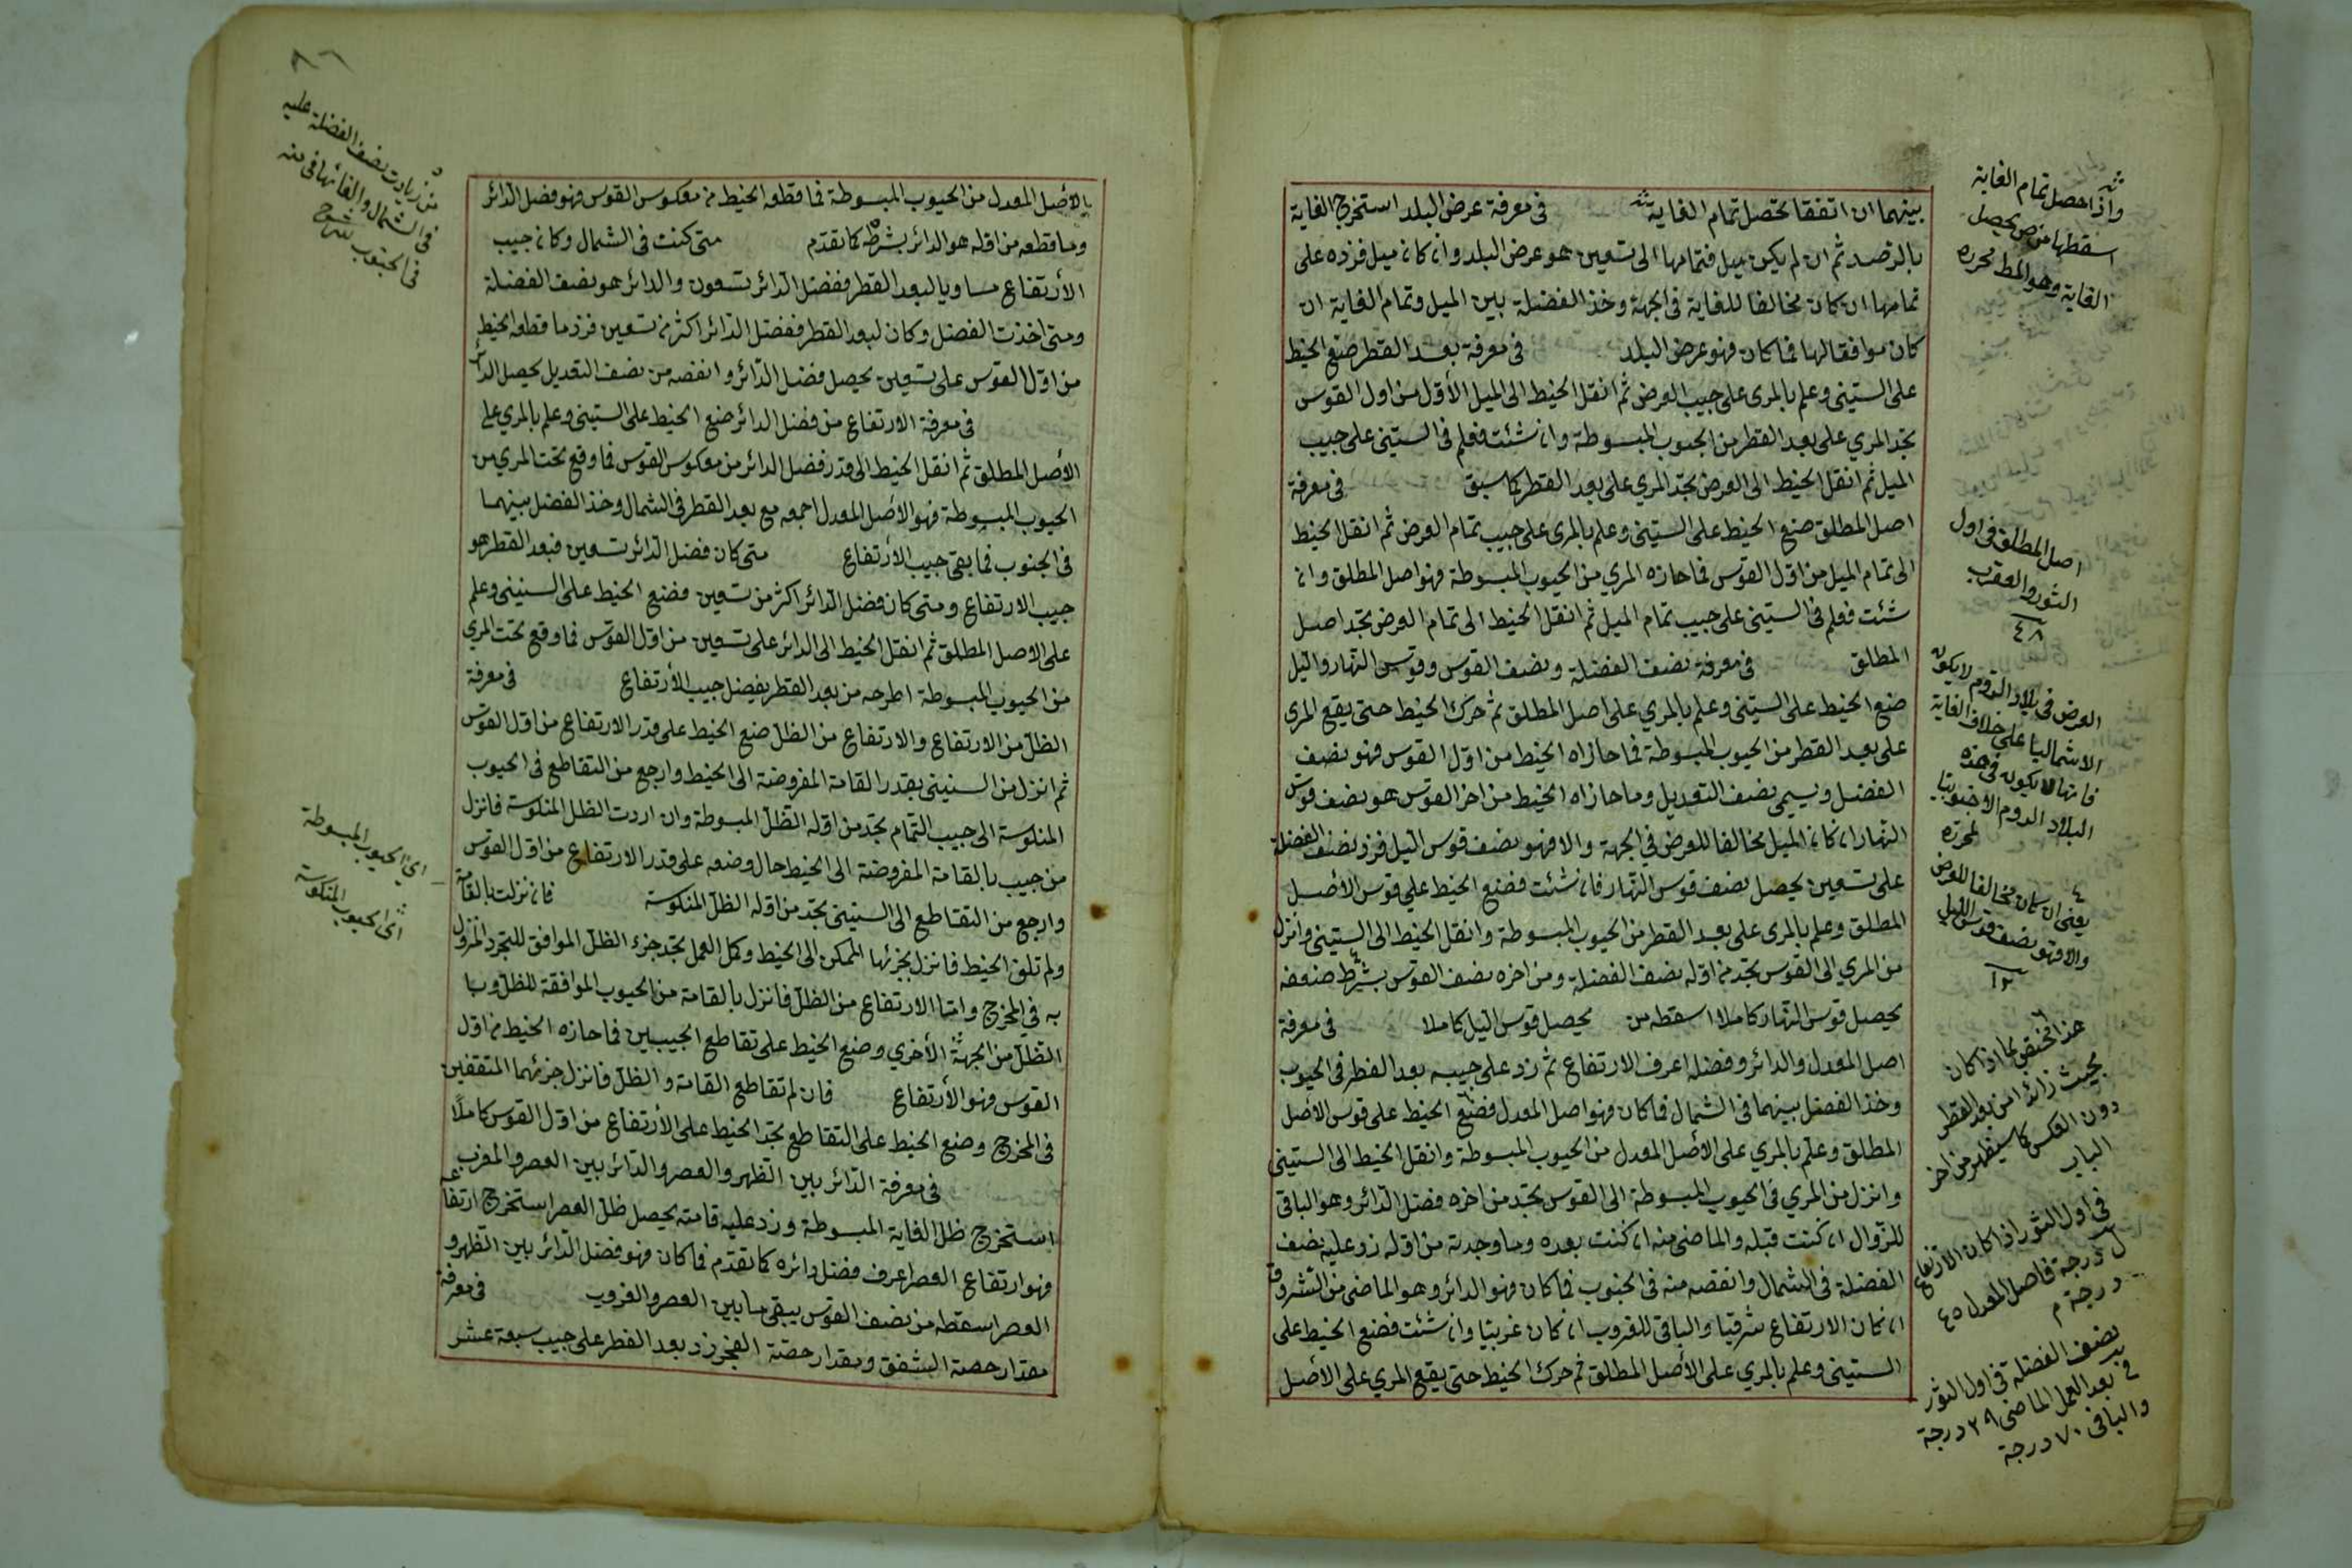 بينهما ان اتفقا تحصل تمام الغاية في معرفة عرض البلد استخرج الغاية
بالرصد ثم ان لم يكن ميل فتمامها الى تسعين هو عرض البلد وان كان ميل فزده على
تمامها ان كان مخالفا للغاية في الجهة وخذ الفضلة بين الميل وتمام الغاية ان
كان موافقا لها فما كان فهو عرض البلد في معرفة بعد القطر ضع الخيط
على الستيني وعلم بالمري على جيب العرض ثم انقل الخيط الى الميل الأول من اول القوس
تجد المري على بعد القطر من الجيوب المبسوطة وان شئت فعلم في الستيني على جيب
الميل ثم انقل الخيط الى العرض تجد المري على بعد القطر كما سبق في معرفة
اصل المطلق ضع الخيط على الستيني وعلم بالمري على جيب تمام العرض ثم انقل الخيط
الى تمام الميل من اول القوس فما حازه المري من الجيوب المبسوطة فهو اصل المطلق وان
شئت فعلم في الستيني على جيب تمام الميل ثم انقل الخيط الى تمام العرض تجد اصل
المطلق في معرفة نصف الفضلة ونصف القوس وقوس النهار والليل
ضع الخيط على الستيني وعلم بالمري على اصل المطلق ثم حرك الخيط حتى يقع المري
على بعد القطر من الجيوب المبسوطة فما حازاه الخيط من اول القوس فهو نصف
الفضل ويسمى نصف التعديل وما حازاه الخيط من اخر القوس هو نصف قوس
النهار ان كان الميل مخالفا للعرض في الجهة والا فهو نصف قوس الليل فزد نصف الفضلة
على تسعين يحصل نصف قوس النهار فان شئت فضع الخيط على قوس الأصل
المطلق وعلم بالمري على بعد القطر من الجيوب المبسوطة وانقل الخيط الى الستيني وانزل
من المري الى القوس تجد من اوله نصف الفضلة ومن اخره نصف القوس بشرط ضعفه
يحصل قوس النهار كاملا اسقطه من يحصل قوس الليل كاملا في معرفة
اصل المعدل والدائر وفضله اعرف الارتفاع ثم زد على جيبه بعد القطر في الجيوب
وخذ الفضل بينهما في الشمال فما كان فهو اصل المعدل فضع الخيط على قوس الأصل
المطلق وعلم بالمري على الأصل المعدل من الجيوب المبسوطة وانقل الخيط الى الستيني
وانزل من المري في الجيوب المبسوطة الى القوس تجد من اخره فضل الدائر وهو الباقي
للزوال ان كنت قبله والماضي منه ان كنت بعده وما وجدته من اوله زد عليه نصف
الفضلة في الشمال وانقصه منه في الجنوب فما كان فهو الدائر وهو الماضي من الشروق
ان كان الارتفاع شرقيا والباقي للغروب ان كان غربيا وان شئت فضع الخيط على
الستيني وعلم بالمري على الأصل المطلق ثم حرك الخيط حتى يقع المري على الأصل
واذا حصل تمام الغاية
اسقطها من ص يحصل
الغاية وهو المط لمحرره
اصل المطلق في اول
الثور والعقرب
٤٨
العرض في بلاد الروم لا يكون
الا شماليا على خلاف الغاية
فانها لا يكون في هذه
البلاد الروم الا جنوبيا
لمحرره
يعني ان كان مخالفا للعرض
والا فهو نصف قوس الليل
١٢
هذا مختص بما اذا كان
بحيث زائدا من بعد القطر
دون العكس كما سيظهر من اخر
الباب
في اول الثور اذا كان الارتفاع
درجة فاصل المعدل ٤٥
درجة م
نصف الفضلة في اول الثور
بعد العمل الماضي ٢٩ درجة
والباقي ٧٠ درجة
بالأصل المعدل من الجيوب المبسوطة فما قطعه الخيط من معكوس القوس فهو فضل الدائر
وما قطعه من اوله هو الدائر بشرطه كما تقدم متى كنت في الشمال وكان جيب
الأرتفاع مساويا لبعد القطر ففضل الدائر تسعون والدائر هو نصف الفضلة
ومتى اخذت الفضل وكان لبعد القطر ففضل الدائر اكثر من تسعين فزد ما قطعه الخيط
من اول القوس على تسعين يحصل فضل الدائر وانقصه من نصف التعديل يحصل الدائر
في معرفة الارتفاع من فضل الدائر ضع الخيط على الستيني وعلم بالمري على
الأصل المطلق ثم انقل الخيط الى قدر فضل الدائر من معكوس القوس فما وقع تحت المري من
الجيوب المبسوطة فهو الأصل المعدل اجمعه مع بعد القطر في الشمال وخذ الفضل بينهما
في الجنوب فما بقى جيب الأرتفاع متى كان فضل الدائر تسعين فبعد القطر هو
جيب الارتفاع ومتى كان فضل الدائر اكثر من تسعين فضع الخيط على الستيني وعلم
على الاصل المطلق ثم انقل الخيط الى الدائر على تسعين من اول القوس فما وقع تحت المري
من الجيوب المبسوطة اطرحه من بعد القطر يفضل جيب الأرتفاع في معرفة
الظل من الارتفاع والارتفاع من الظل ضع الخيط على قدر الارتفاع من اول القوس
ثم انزل من الستيني بقدر القامة المفروضة الى الخيط وارجع من التقاطع في الجيوب
المنكوسة الى جيب التمام تجد من اوله الظل المبسوطة وان اردت الظل المنكوسة فانزل
من جيب بالقامة المفروضة الى الخيط حال وضعه على قدر الارتفاع من اول القوس
وارجع من التقاطع الى الستيني تجد من اوله الظل المنكوسة فان نزلت بالقامة
ولم تلق الخيط فانزل بجزئها الممكن الى الخيط وكمل العمل تجد جزء الظل الموافق للتجرد المنزول
به في المخرج واما الارتفاع من الظل فانزل بالقامة من الجيوب الموافقة للظل وبا
الظل من الجهة الأخرى وضع الخيط على تقاطع الجيبين فما حازه الخيط من اول
القوس فهو الأرتفاع فان لم تقاطع القامة والظل فانزل جزئهما المتفقين
في المخرج وضع الخيط على التقاطع تجد الخيط على الأرتفاع من اول القوس كاملا
في معرفة الدائر بين الظهر والعصر والدائر بين العصر والمغرب
استخرج ظل الغاية المبسوطة وزد عليه قامته يحصل ظل العصر استخرج ارتفاعه
فهو ارتفاع العصر اعرف فضل دائره كما تقدم فما كان فهو فضل الدائر بين الظهر و
العصر اسقطه من نصف القوس يبقى ما بين العصر والغروب في معرفة
مقدار حصة الشفق ومقدار حصة الفجر زد بعد القطر على جيب سبعة عشر
من زيادت نصف الفضلة عليه
في الشمال والقائها في منه
في الجنوب شرح
اي الجيوب المبسوطة
اى الجيوب المنكوسة